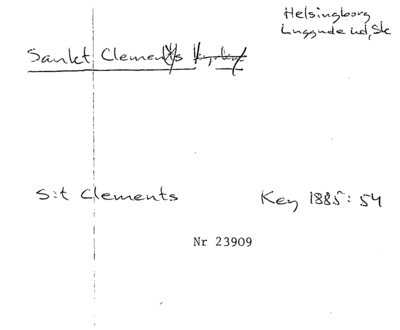 Helsingborg
Luggude hd, Sk
Sankt Clements
S:t Clements Key 1885: 54
Nr 23909